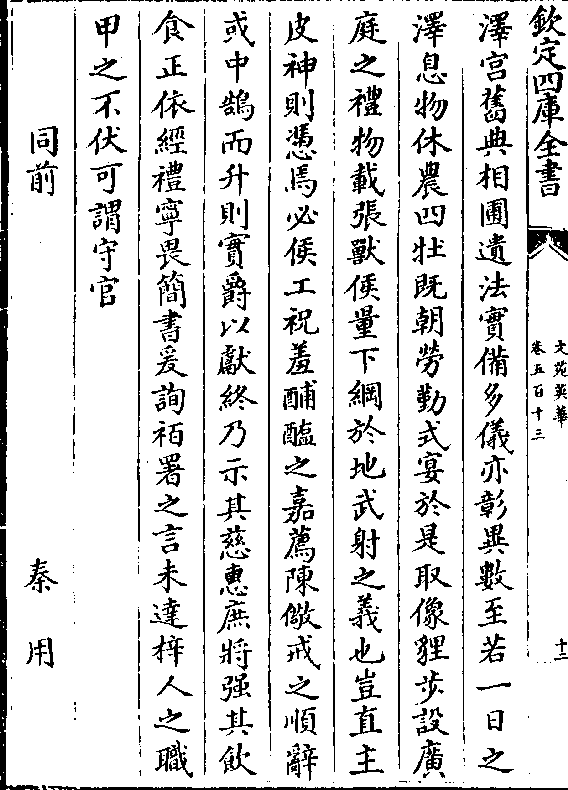 欽定四庫全書
文苑英華
卷五百十三
十三
澤宮舊典相圃遺法實備多儀亦彰異數至若一日之
澤息物休農四牡既朝勞勤式宴於是取像貍步設廣
庭之禮物載張獸侯量下綱於地武射之義也豈直主
皮神則憑焉必俟工祝羞酺醢之嘉薦陳儆戒之順辭
或中鵠而升則實爵以獻終乃示其慈惠庶將强其飲
食正依經禮寧畏簡書爰詢祏署之言未達梓人之職
甲之不伏可謂守官
同前
秦用